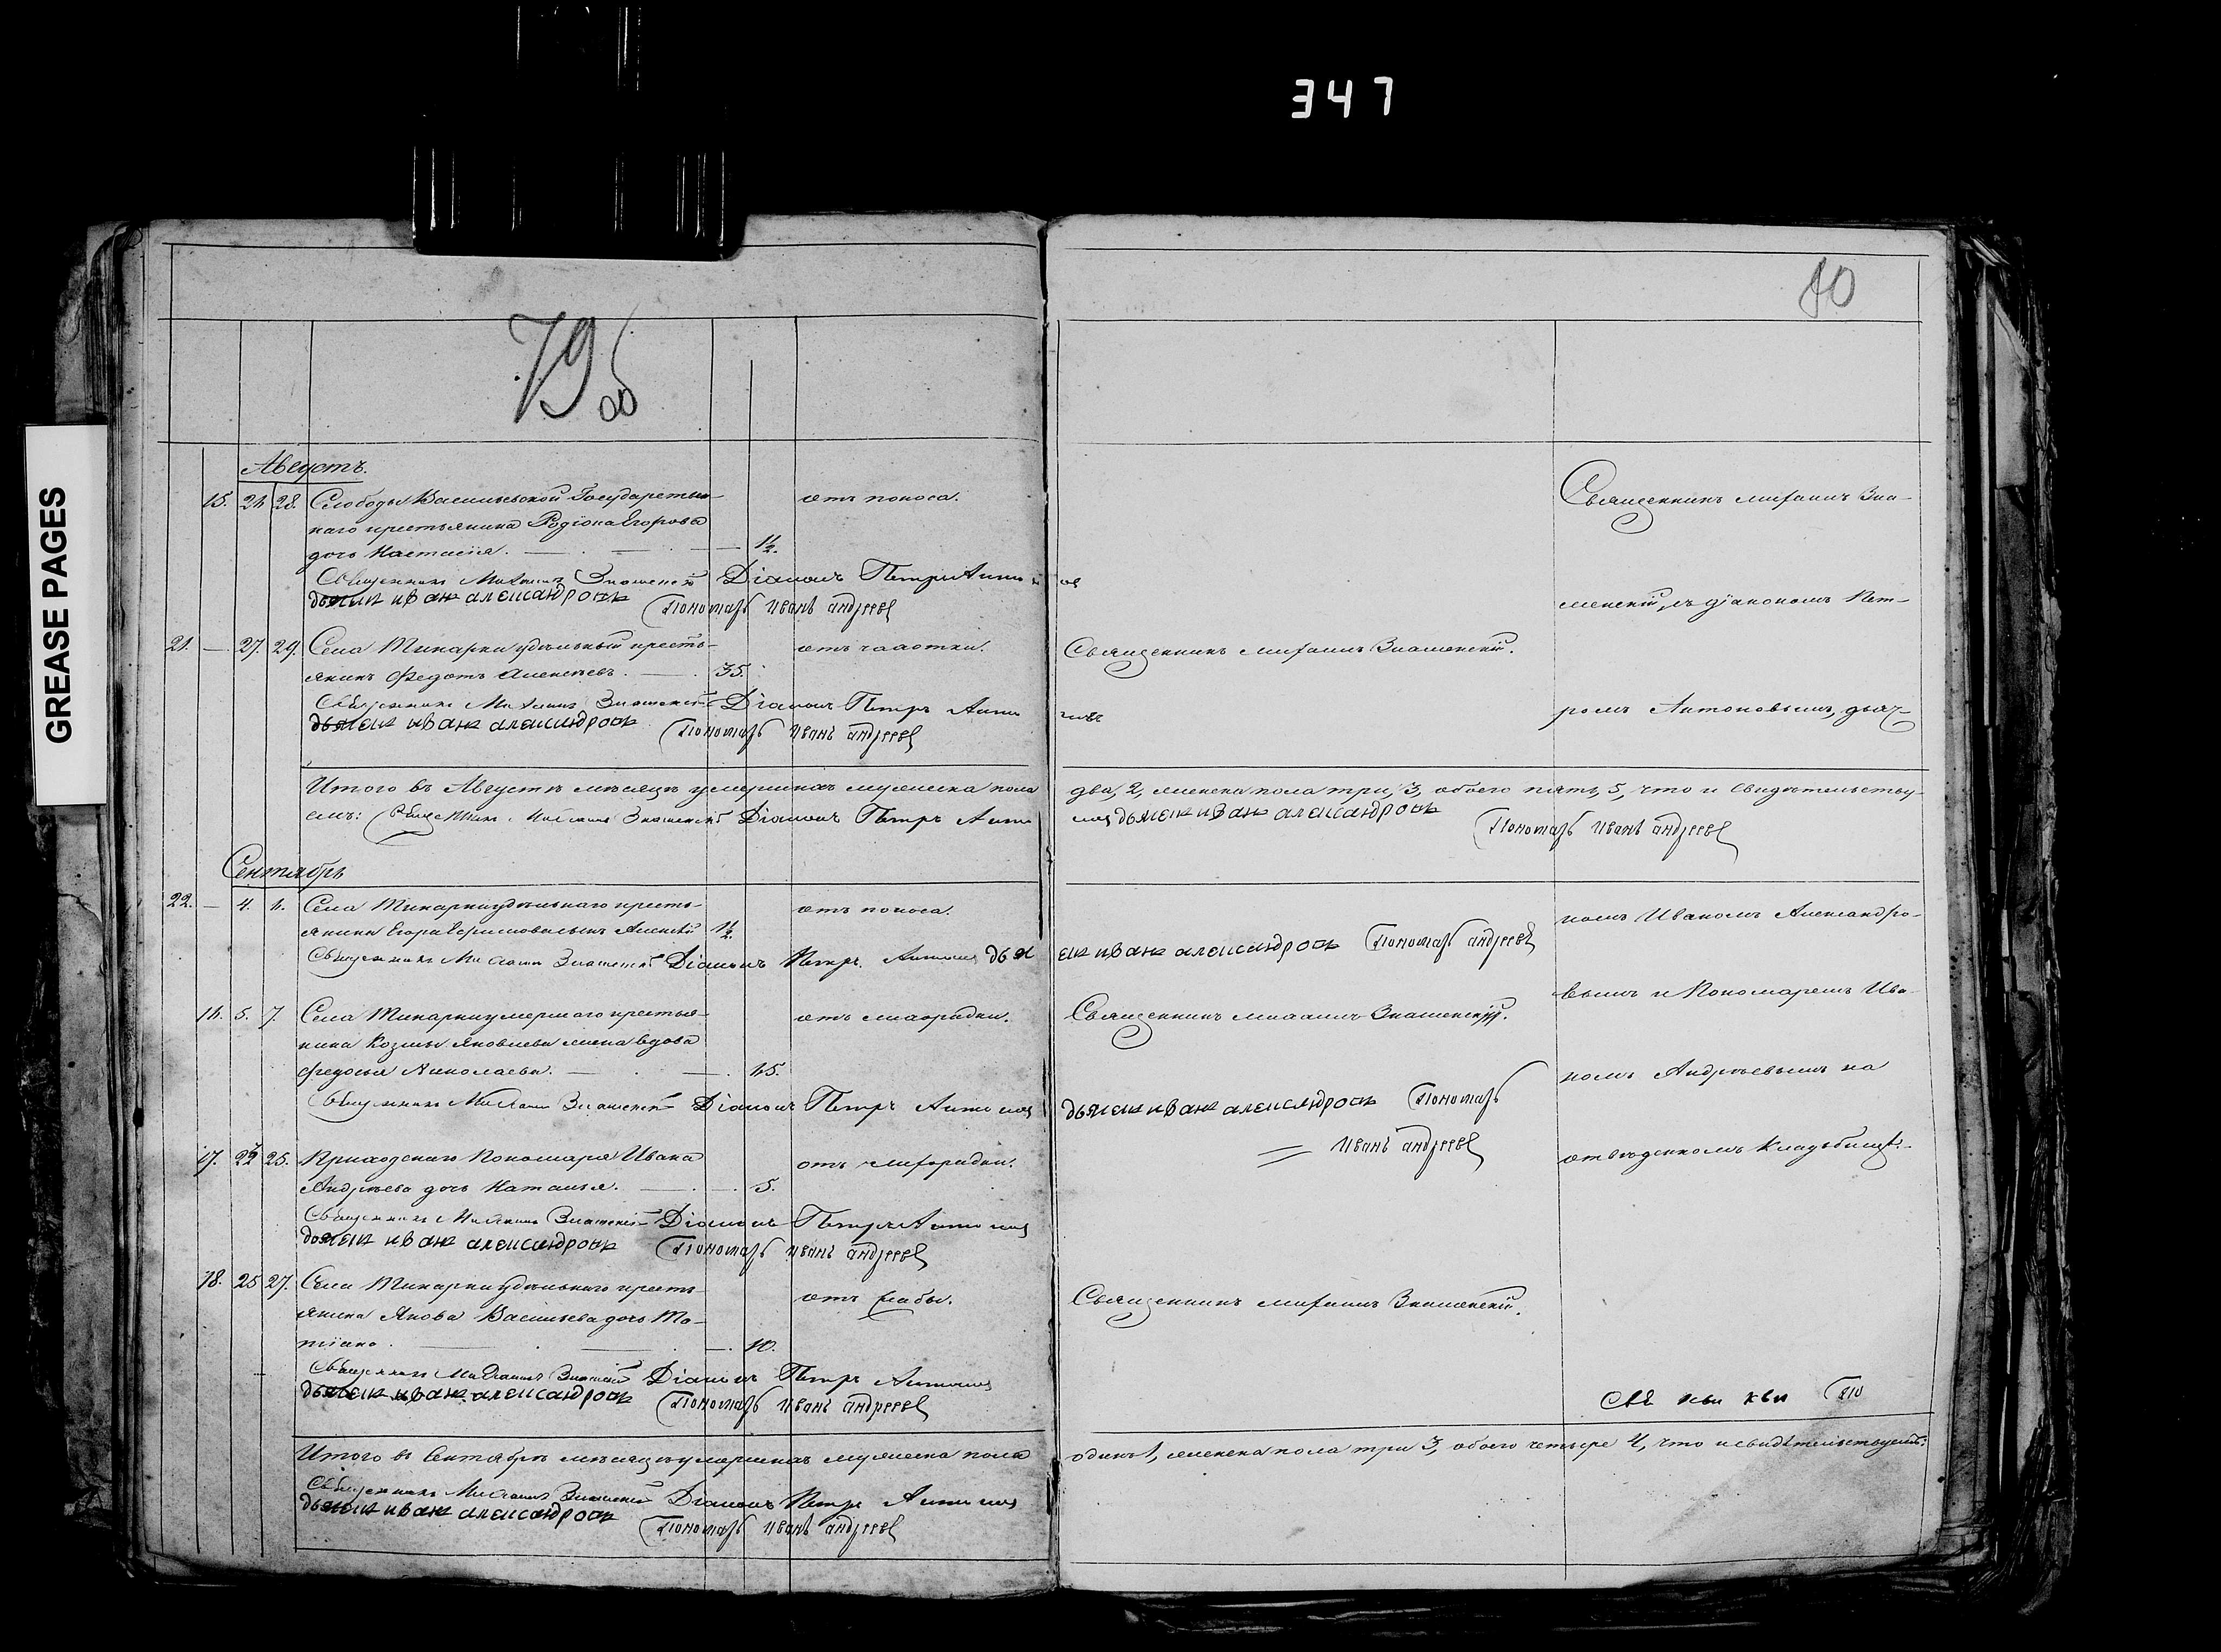 347
GREASE PAGES
79 об
80
Августъ.
15. 24 28. Слободы Васильевской Государствен-
наго крестьянина Родіона Егорова
дочь Настасія. 1½.
отъ поноса.
Священникъ Михаилъ Знаменскій Діаконъ Петръ Антоновъ
дьячекъ иванъ александровъ Пономарь Иванъ андреевъ
21. — 27. 29. Села Тинарки удѣльный кресть-
янинъ Федотъ Алексѣевъ. 35.
отъ чахотки.
Священникъ михаилъ Знаменскій.
Священникъ Михаилъ Знаменскій Діаконъ Петръ Антоновъ
дьячекъ иванъ александровъ Пономарь Иванъ андреевъ
Итого въ Августѣ мѣсяцѣ умершихъ мужеска пола два, 2, женска пола три, 3, обоего пять, 5, что и свидѣтельству-
емъ: Священникъ Михаилъ Знаменскій Діаконъ Петръ Антоновъ дьячекъ иванъ александровъ
Пономарь Иванъ андреевъ
Сентябрь
22. — 4. Села Тинарки удѣльнаго кресть-
янина Егора сынъ Алексѣй 1½.
отъ поноса.
Священникъ Михаилъ Знаменскій Діаконъ Петръ Антоновъ дьячекъ иванъ александровъ Пономарь андреевъ
16. 5. 7. Села Тинарки умершаго крестья-
нина Козмы Яковлева жена вдова
Федосья Николаева. 45.
отъ лихорадки.
Священникъ михаилъ Знаменскій.
Священникъ Михаилъ Знаменскій Діаконъ Петръ Антоновъ дьячекъ иванъ александровъ Пономарь
Иванъ андреевъ
17. 23 25. Приходскаго Пономаря Ивана
Андрѣева дочь Наталья. 5.
отъ лихорадки.
Священникъ Михаилъ Знаменскій Діаконъ Петръ Антоновъ
дьячекъ иванъ александровъ Пономарь Иванъ андреевъ
18. 25 27. Села Тинарки удѣльнаго кресть-
янина Якова Васильева дочь Та-
тіана. 10.
Священникъ михаилъ Знаменскій.
Священникъ Михаилъ Знаменскій Діаконъ Петръ Антоновъ
дьячекъ иванъ александровъ Пономарь Иванъ андреевъ
Итого въ Сентябрѣ мѣсяцѣ умершихъ мужеска пола одинъ 1, женска пола три 3, обоего четыре 4, что и свидѣтельствуемъ:
Священникъ Михаилъ Знаменскій Діаконъ Петръ Антоновъ
дьячекъ иванъ александровъ
Пономарь Иванъ андреевъ
Священникъ михаилъ Зна-
менскій, съ діакономъ Пет-
ромъ Антоновымъ, дьяч-
комъ Иваномъ Александро-
вымъ и Пономаремъ Ива-
номъ Андрѣевымъ на
отведенномъ кладбищѣ.